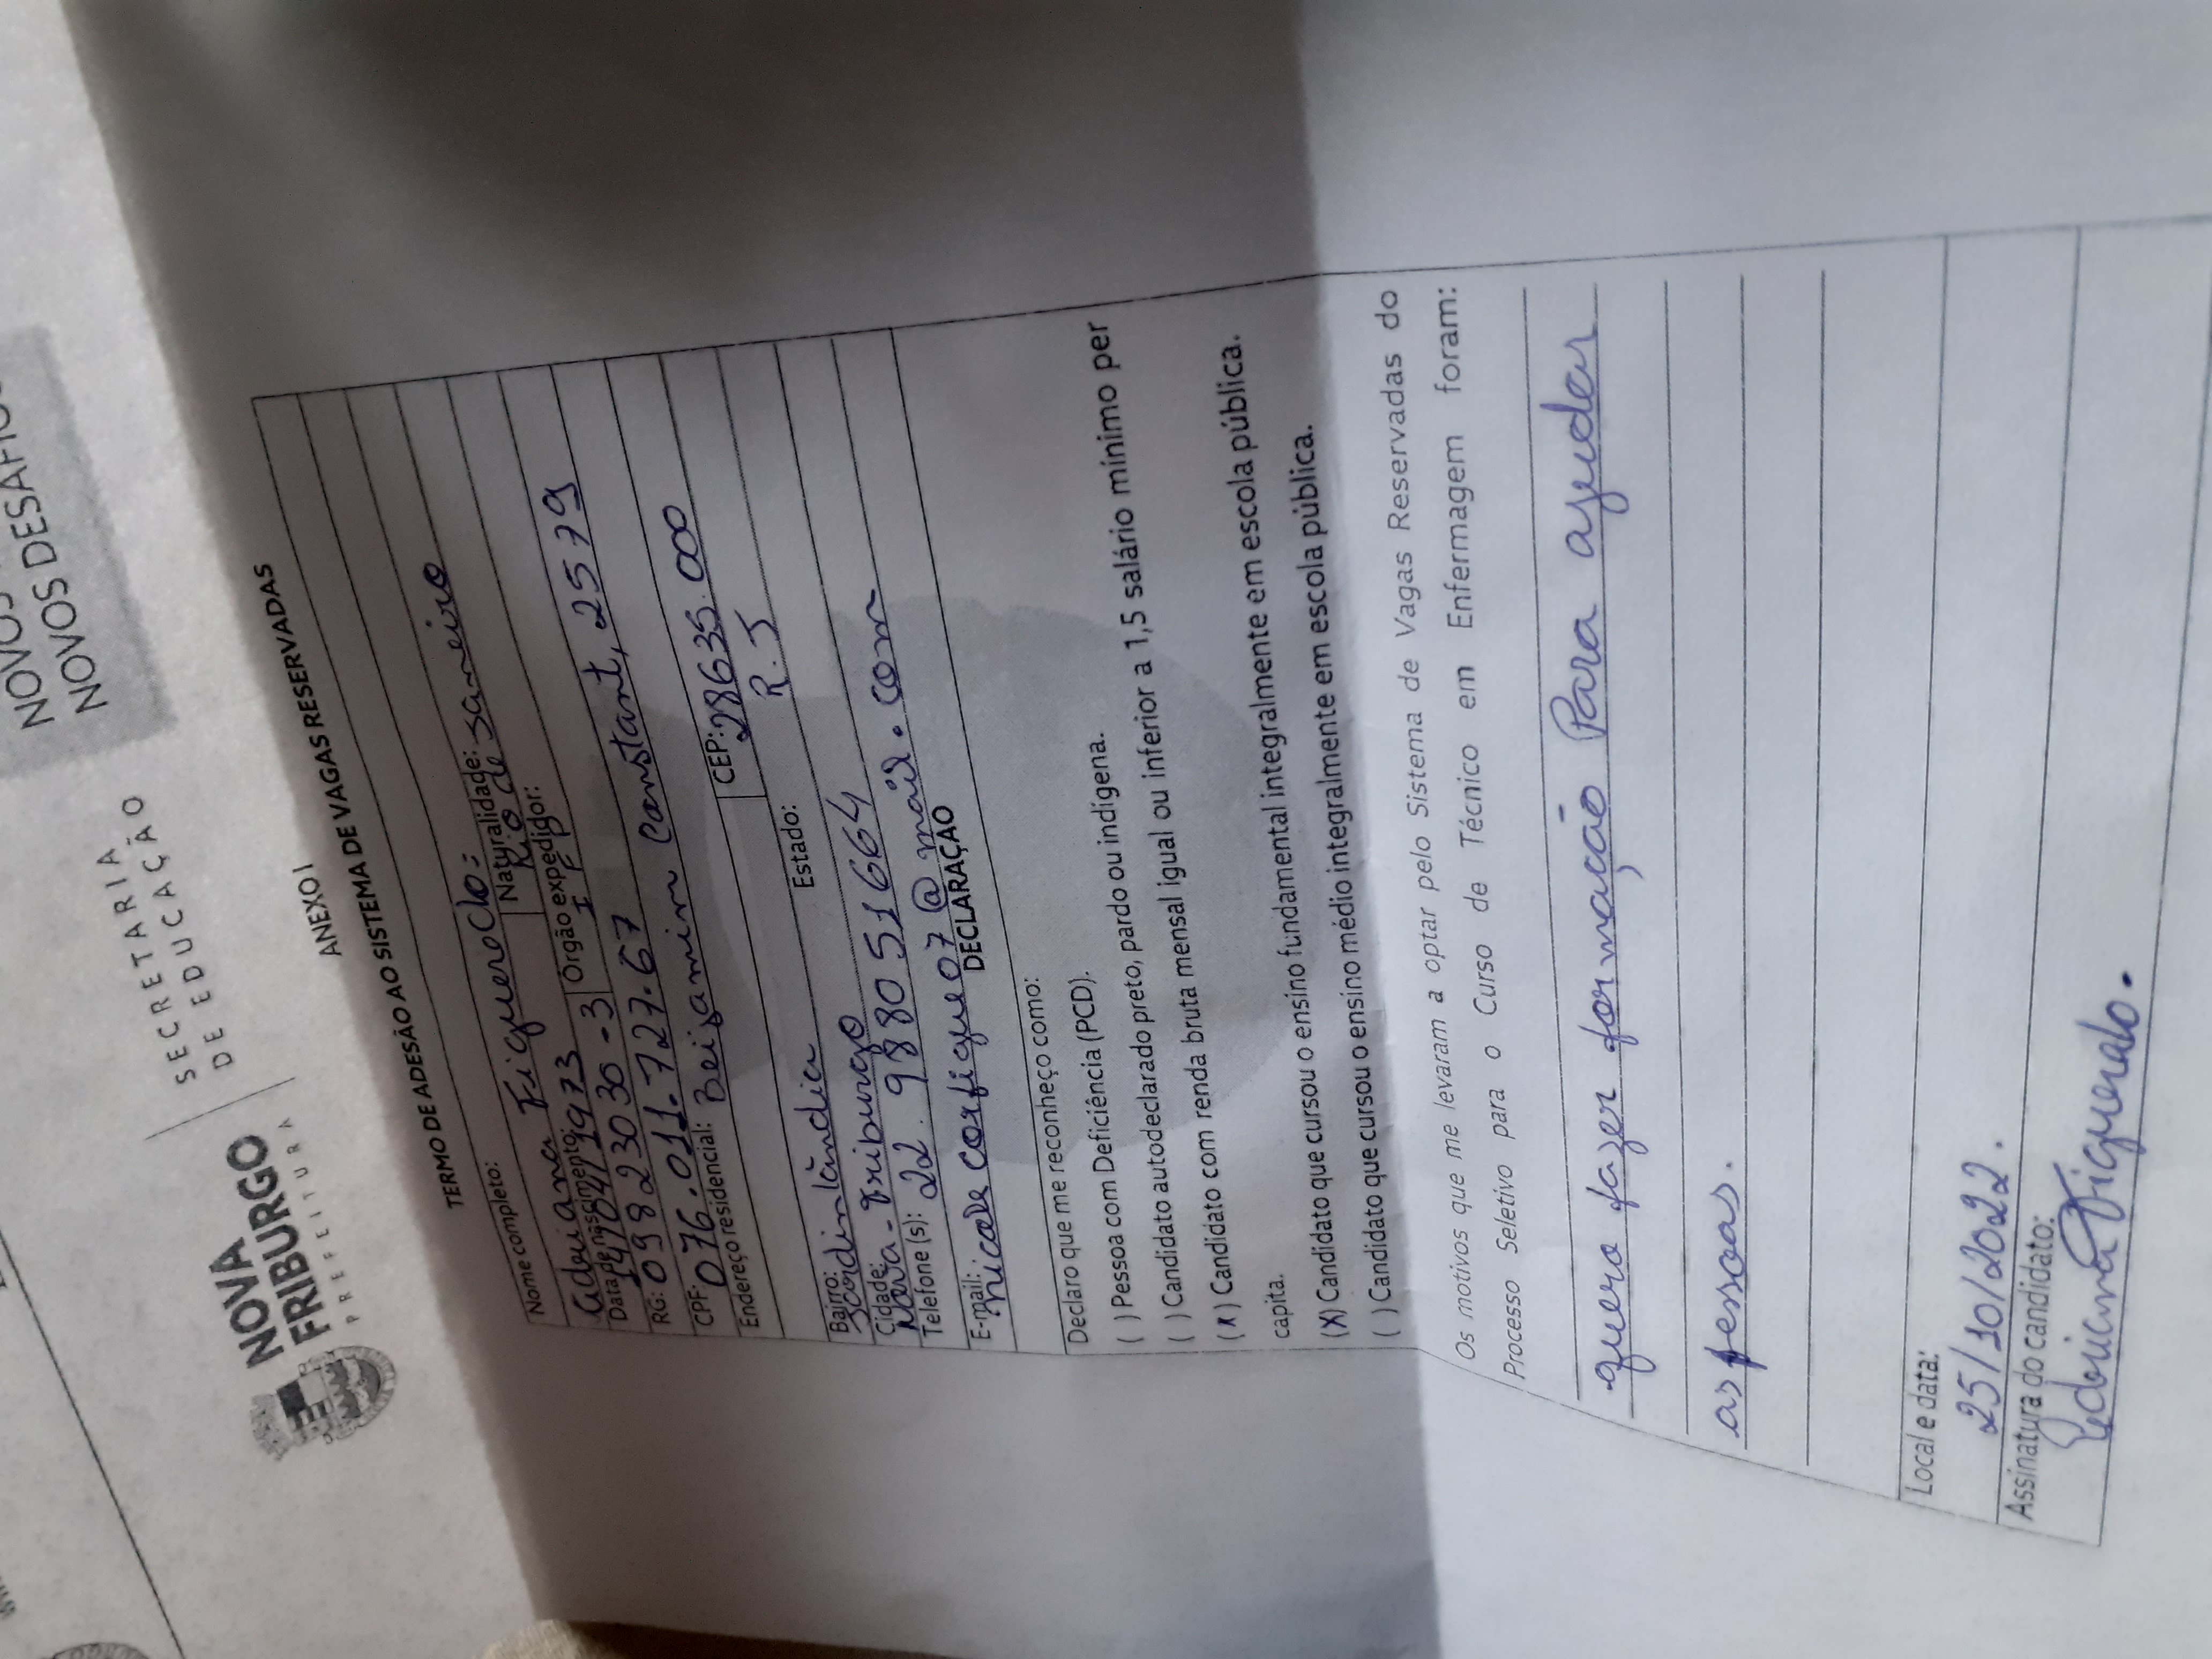 NOVA
FRIBURGO
PREFEITURA
SECRETARIA
DE EDUCAÇÃO
NOVOS DESAFIO
ANEXO I
TERMO DE ADESÃO AO SISTEMA DE VAGAS RESERVADAS
Nome completo:
Adriana Figueredo:
Data de nascimento: 1973 Naturalidade: Rio de Janeiro
RG: 09823030-3 Orgão expedidor: I F P
CPF: 076.011.727.67
Endereço residencial: Beijamim Constant, 2579
CEP: 28635.000
Bairro: Jardinlândia Estado: R.J
Cidade: Nova-Friburgo
Telefone (s): 22. 988051664
E-mail: @mail.com
DECLARAÇÃO
Declaro que me reconheço como:
( ) Pessoa com Deficiência (PCD).
( ) Candidato autodeclarado preto, pardo ou indígena.
(X) Candidato com renda bruta mensal igual ou inferior a 1,5 salário mínimo per
capita.
(X) Candidato que cursou o ensino fundamental integralmente em escola pública.
( ) Candidato que cursou o ensino médio integralmente em escola pública.
Os motivos que me levaram a optar pelo Sistema de Vagas Reservadas do
Processo Seletivo para o Curso de Técnico em Enfermagem foram:
quero fazer formação Para ajudar
as pessoas.
Local e data:
25/10/2022.
Assinatura do candidato:
Adriana Figueredo.